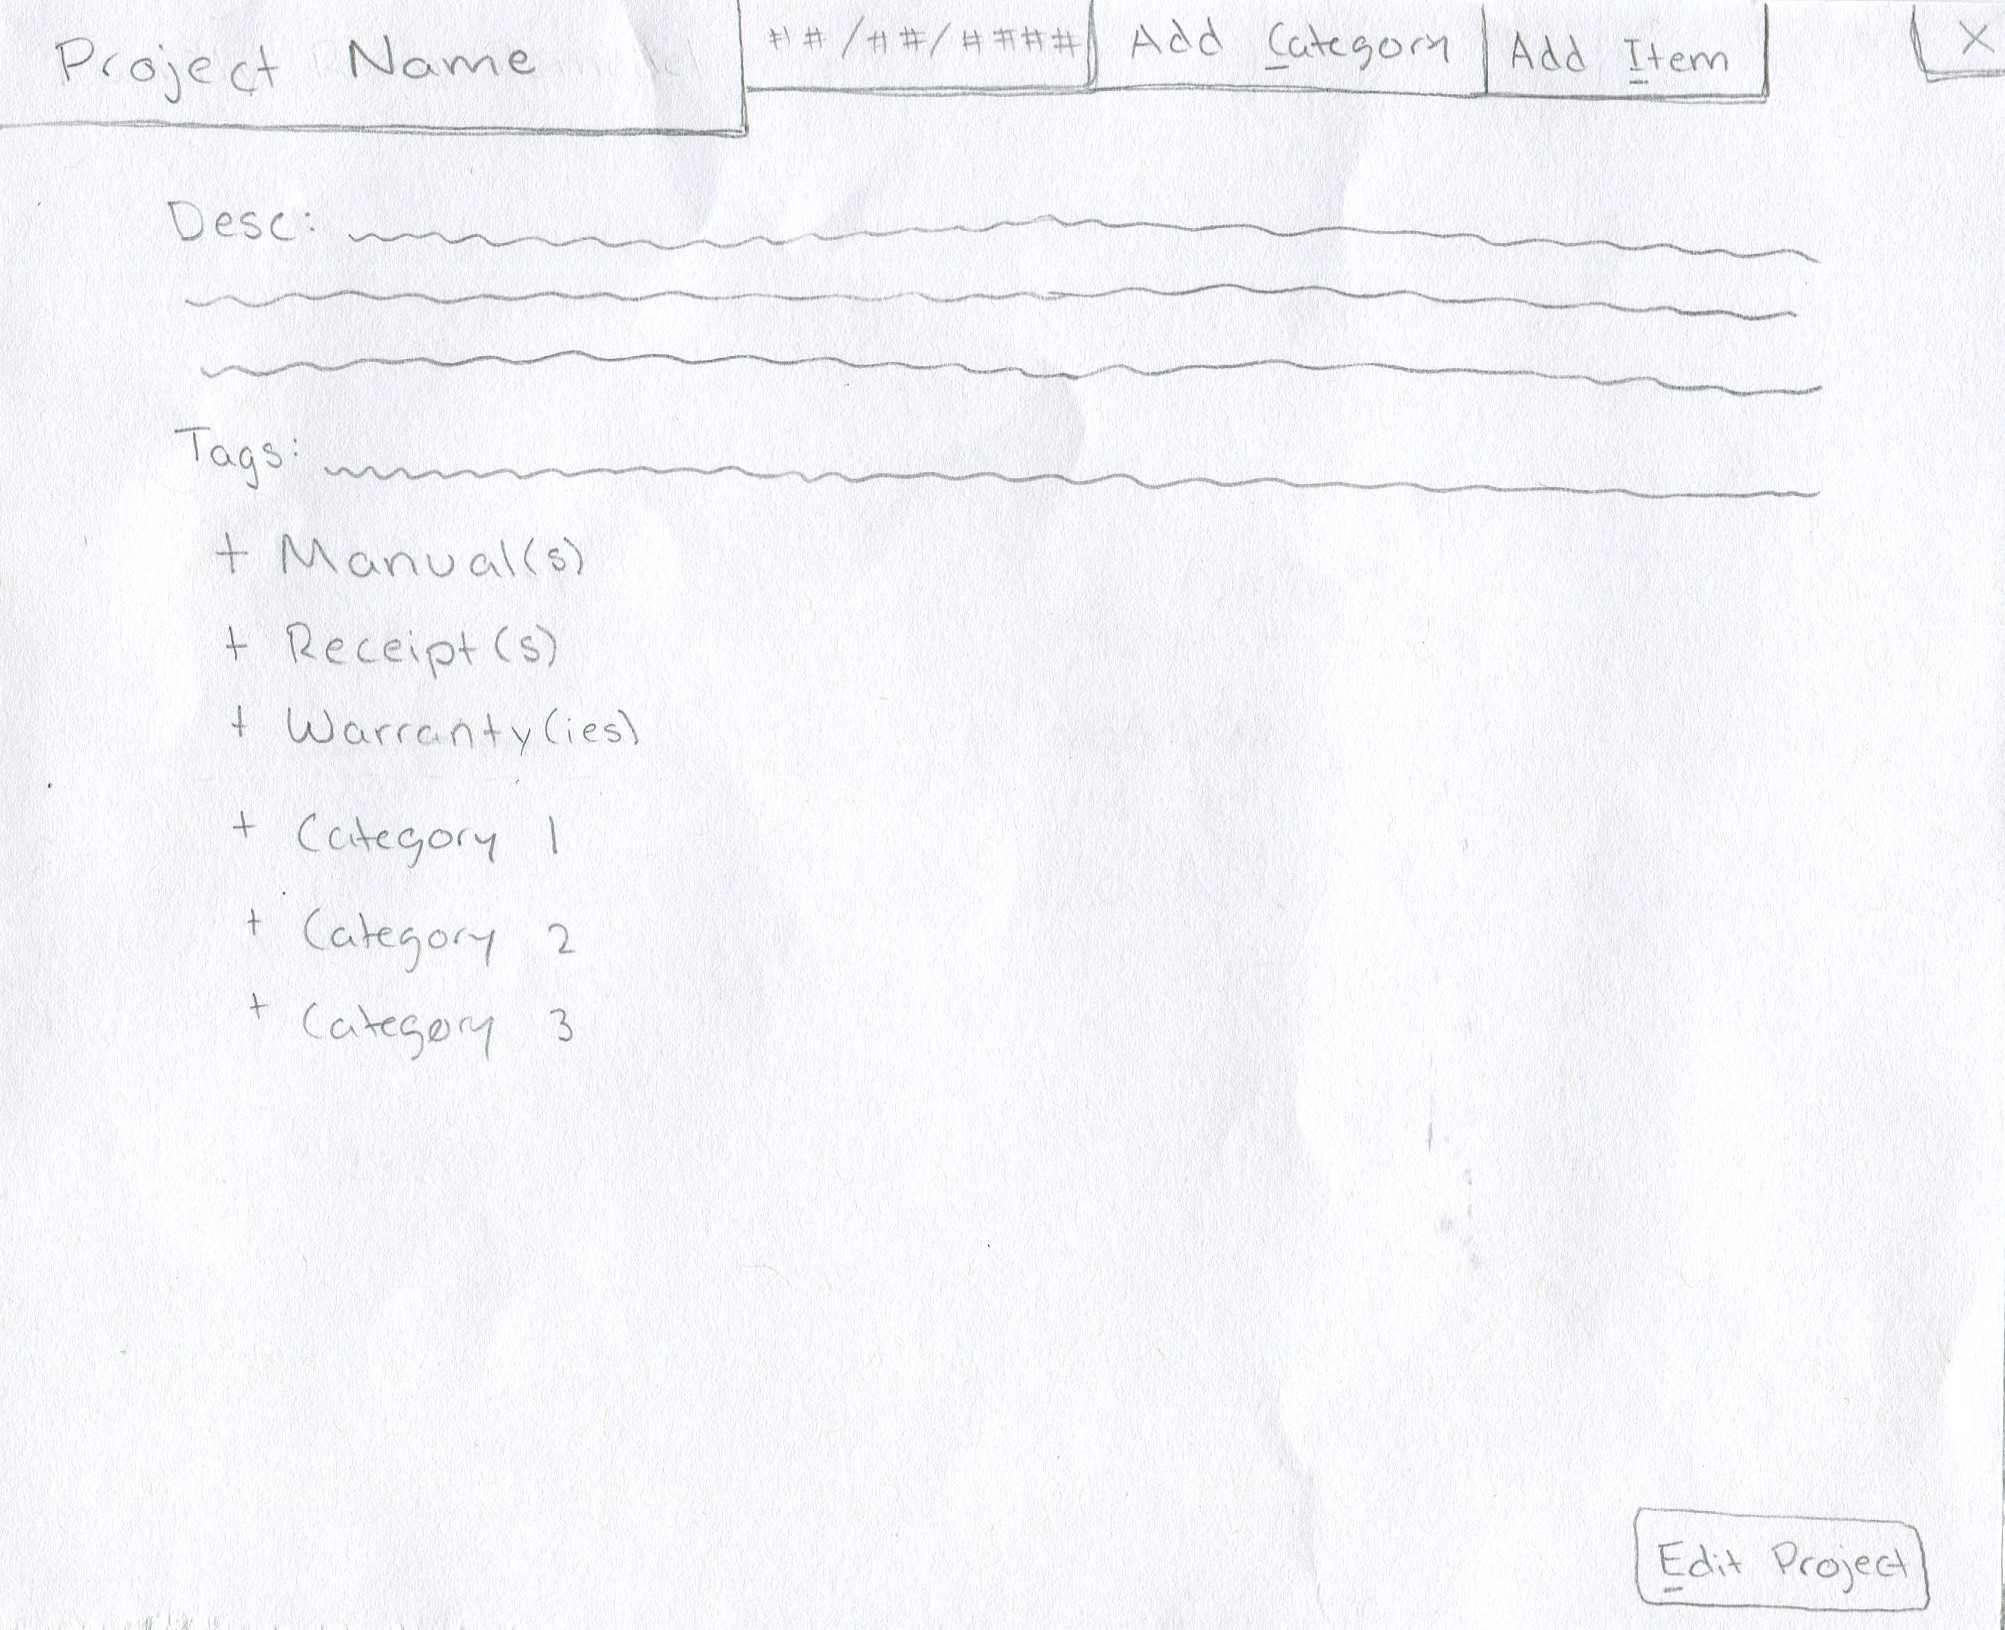 Project Name
##/##/####
Add Category
Add Item
X
Desc:
Tags:
+ Manual(s)
+ Receipt(s)
+ Warranty(ies)
+ Category 1
+ Category 2
+ Category 3
Edit Project